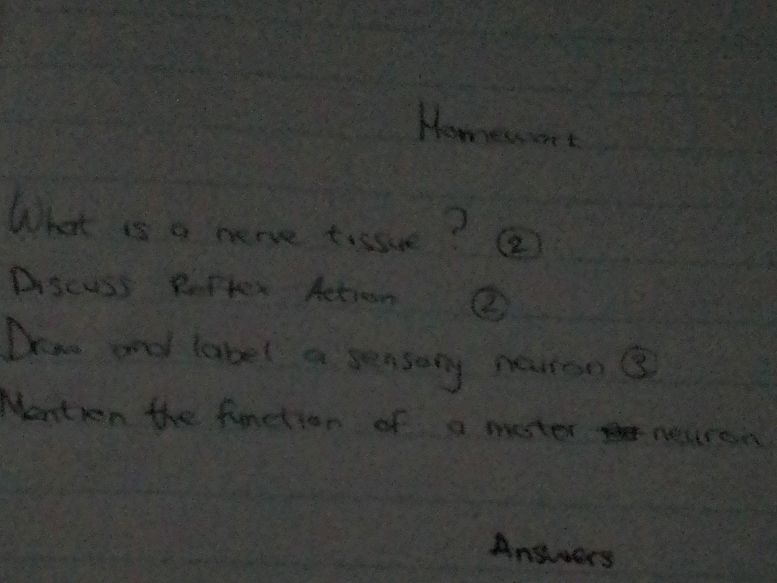 Homework
What is a nerve tissue? ②
Discuss Reflex Action ②
Draw and label a sensory neuron ③
Mention the function of a moter neuron
Answers